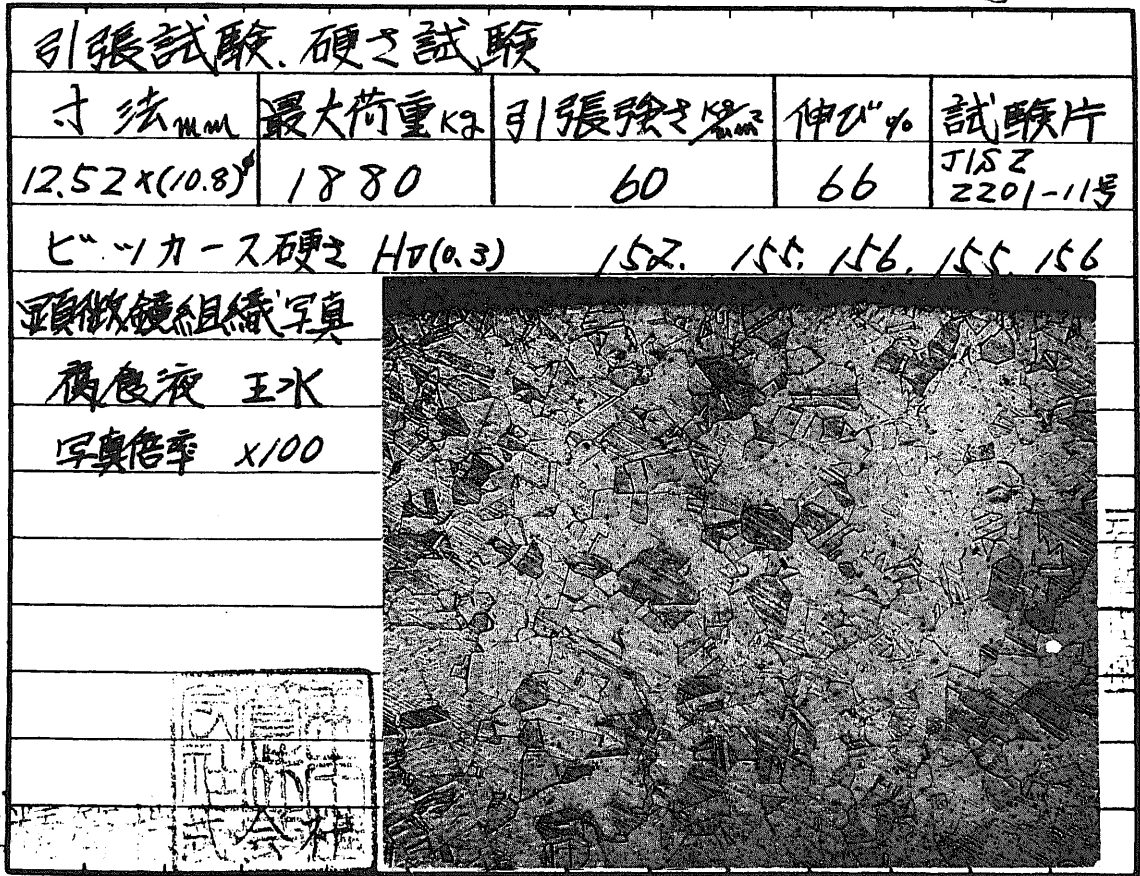 引張試験.硬さ試験
寸法mm 最大荷重Kg 引張強さKg/mm² 伸び% 試験片
12.52×(10.8)φ 1880 60 66 JISZ 2201-11号
ビッカース硬さ HV(0.3) 152. 155. 156. 155. 156
顕微鏡組織写真
腐食液 王水
写真倍率 ×100
式会社